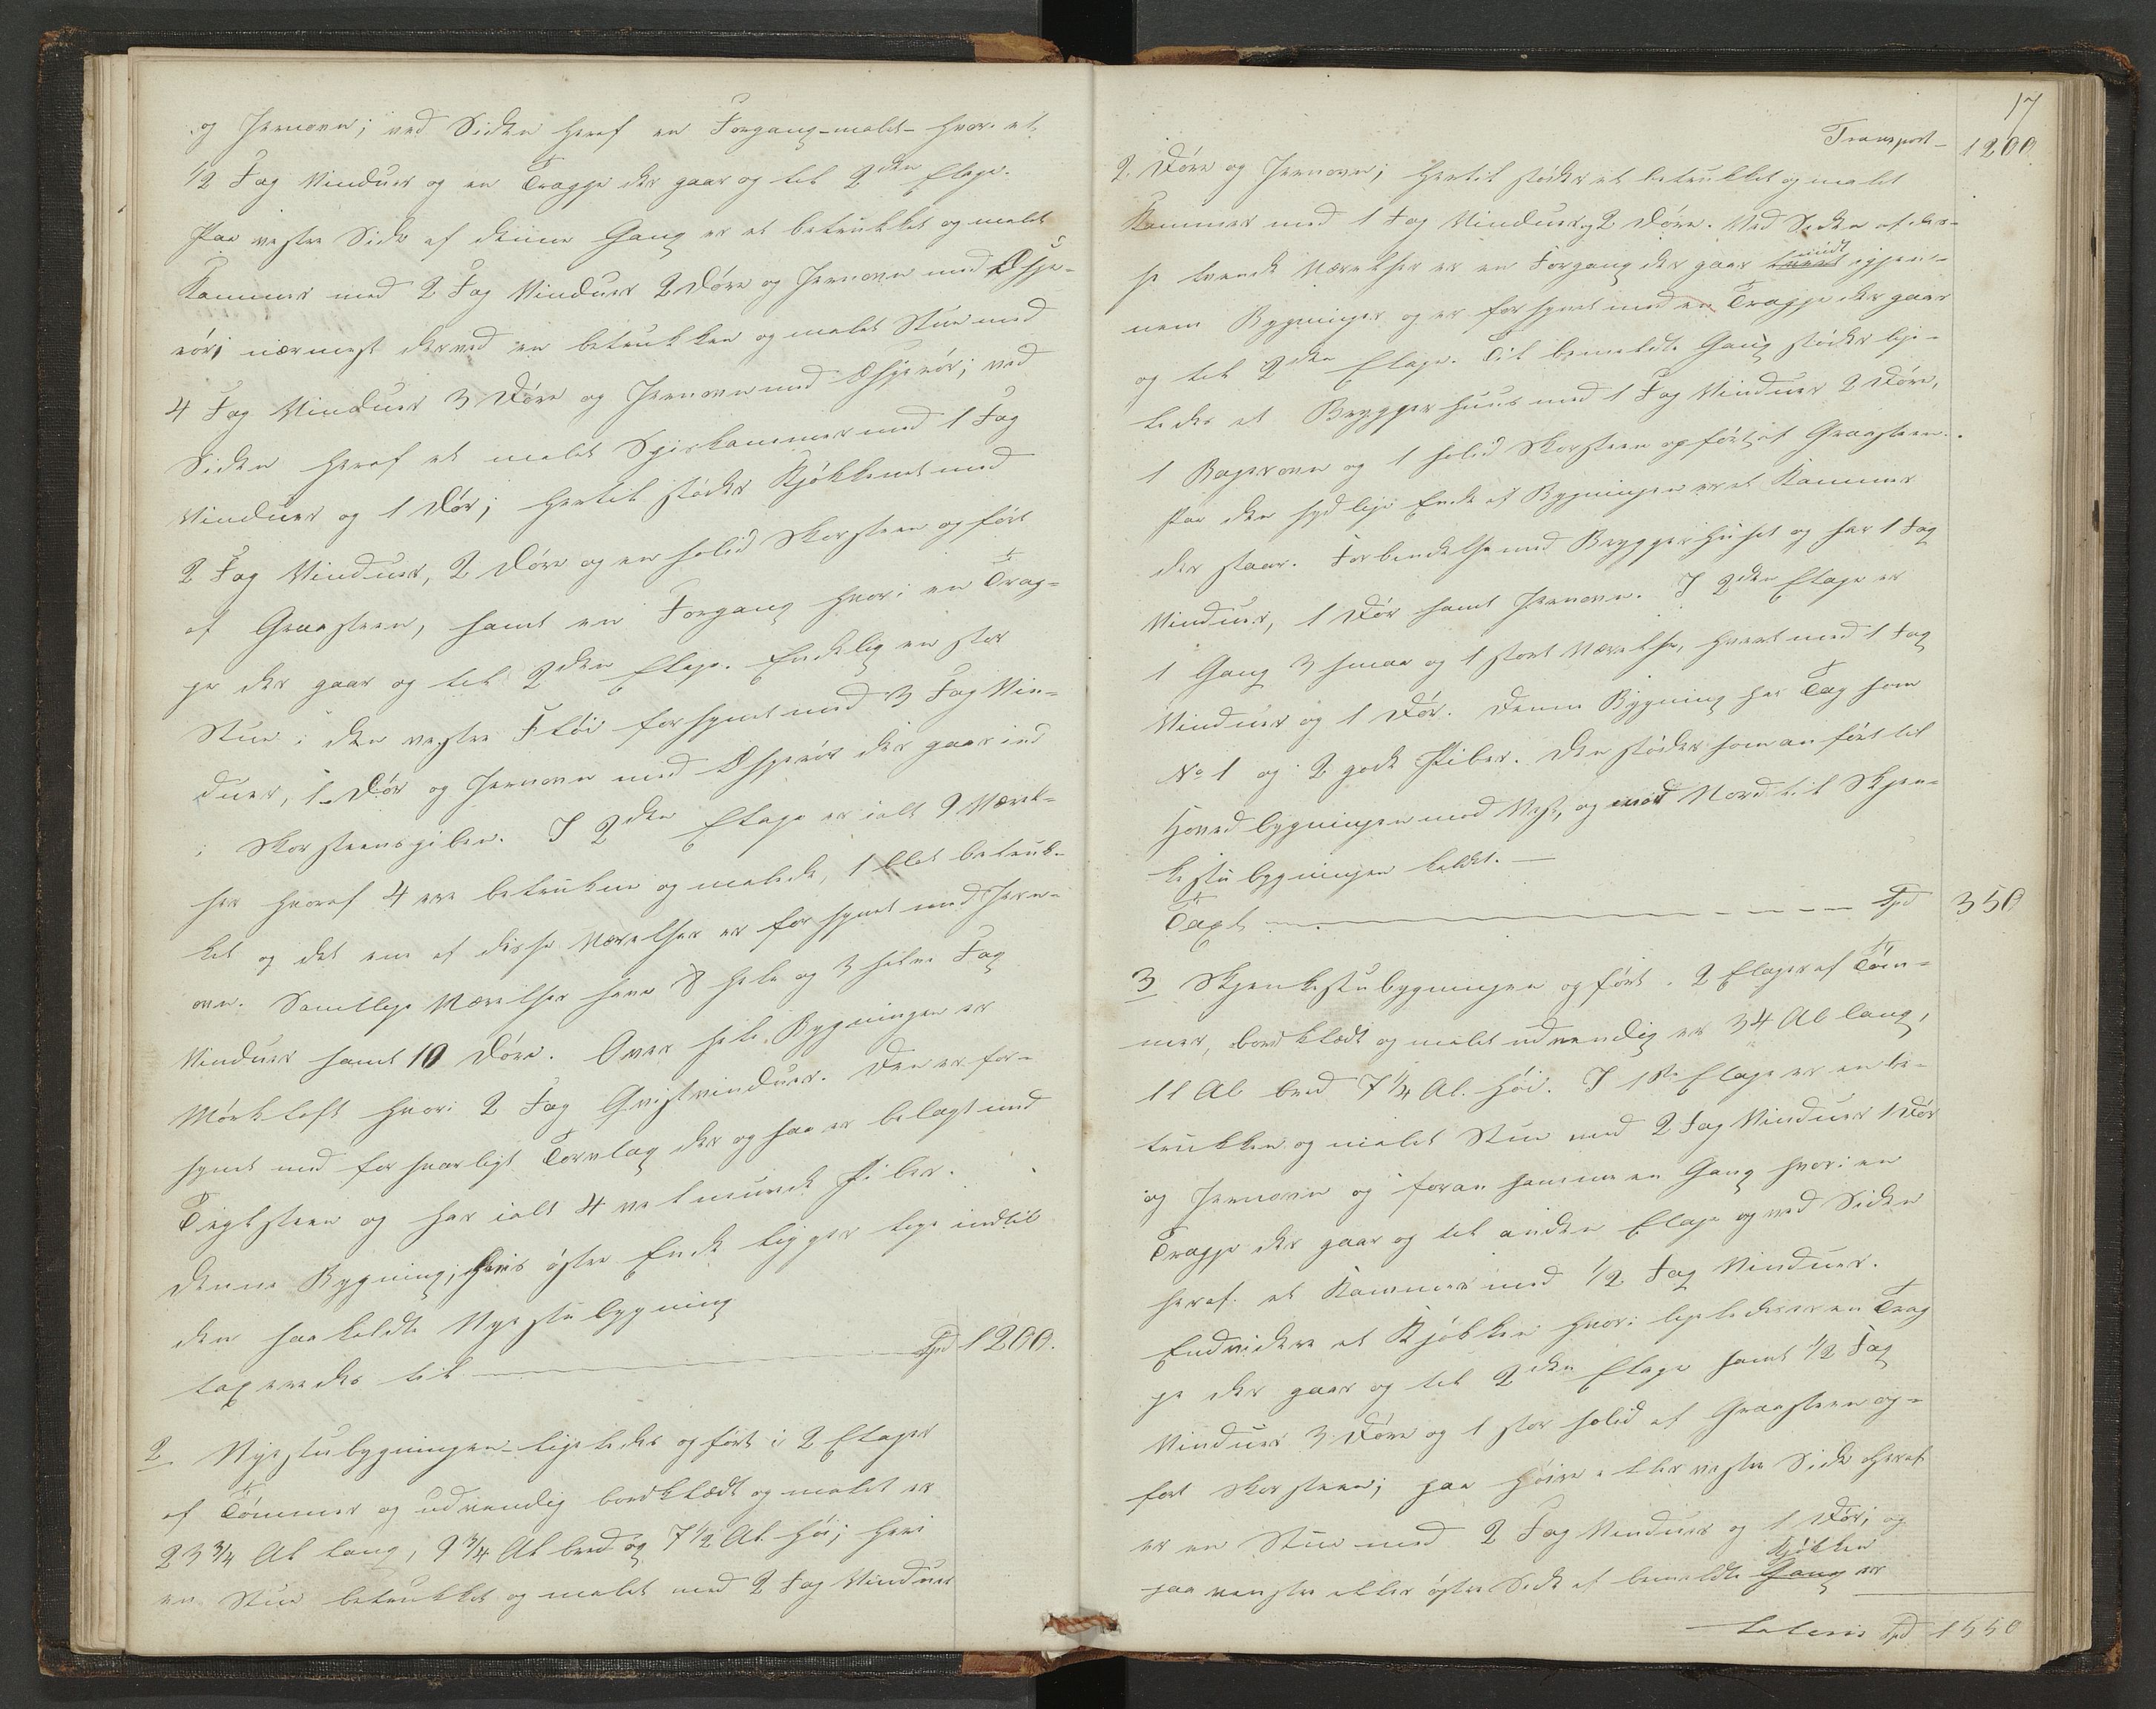 og Jernovn; ved Siden heraf en Forgang-malt- hvori et
1/2 Fag Vinduer og en Trappe der gaar op til 2den Etage.
Paa vestre Side af denne Gang er et betrukket og malet
Kammer med 2 Fag Vinduer 2 Döre og Jernovn med Ofspi-
rör; nærmest derved en betrukken og malet Stue med
4 Fag Vinduer 3 Döre og Jernovn med Ofspirör; ved
Siden heraf et malet Spiskammer med 1 Fag
Vinduer og 1 Dör; hertil støder Kjøkkenet med
2 Fag Vinduer, 2 Döre og en solid Skorsteen opført
af Graasteen, samt en Forgang hvori en Trap-
pe der gaar op til 2den Etage. Endelig en stor
Stue i den vestre Fløi forsynet med 3 Fag Vin-
duer, 1 Dör og Jernovn med Ofspirör der gaar ind
i Skorsteenspiben. I 2den Etage er ialt 9 Værel-
ser hvoraf 4 ere betrukne og malede, 1 blot betruk-
ket og det ene af disse Værelser er forsynet med Jern-
ovn. Samtlige Værelser have 8 hele og 3 halve Fag
Vinduer samt 10 Döre. Over hele Bygningen er
Mörkloft hvori 2 Fag Gvistvinduer. Den er for-
synet med forsvarligt Torvtag der ogsaa er belagt med
Teglsteen og har ialt 4 vel murede Piber.
Denne Bygning, hvis östre Ende ligger lige indtil
den saakaldte Nyestubygning
taxeredes til Spd 1200.
2 Nyestubygningen ligeledes opført i 2 Etager
af Tömmer og udvendig bordklædt og malet er
23 3/4 Al lang, 9 3/4 Al bred og 7 1/2 Al höi; heri
en Stue betrukket og malet med 2 Fag Vinduer
17
Transport- 1200
2 Döre og Jernovn; hertil støder et betrukket og malet
Kammer med 1 Fag Vinduer og 2 Döre. Ved Siden af dis-
se tvende Værelser er en Forgang der gaar midt igjen-
nem Bygningen og er forsynet med en Trappe der gaar
op til 2den Etage. Til bemeldte Gang støder lige-
ledes et Bryggerhuus med 1 Fag Vinduer 2 Döre,
1 Bagerovn og 1 solid Skorsteen opført af Graasteen.
Paa den sydlige Ende af Bygningen er et Kammer
der staar. Forbindelse med Bryggerhuset og har 1 Fag
Vinduer, 1 Dör samt Jernovn. I 2den Etage er
1 Gang 3 smaa og 1 stort Værelse, hvert med 1 Fag
Vinduer og 1 Dör. Denne Bygning har Tag som
No 1 og 2 gode Piber. Den støder som anført til
Hovedbygningen mod Vest, og mod Nord til Skjen-
kestubygningen kaldet.
Taxt Spd 350
3 Skjenkestubygningen opført i 2 Etager af Töm-
mer, bordklædt og malet udvendig er 34 Al lang,
11 Al bred 7 1/4 Al. höi. I 1ste Etage er en be-
trukken og malet Stue med 2 Fag Vinduer 1 Dör
og Jernovn og foran samme en Gang hvori en
Trappe der gaar op til anden Etage og ved Siden
heraf et Kammer med 1/2 Fag Vinduer.
Endvidere et Kjökken hvori ligeledes er en Trap
pe der gaar op til 2den Etage samt 1/2 Fag
Vinduer 3 Döre og 1 stor solid af Graasteen op-
ført Skorsteen; paa höire eller vestre Side heraf
er en Stue med 2 Fag Vinduer og 1 Dör; og
Kjökken
paa venstre eller östre Side af bemeldte Gang er
Lateris Spd 1550